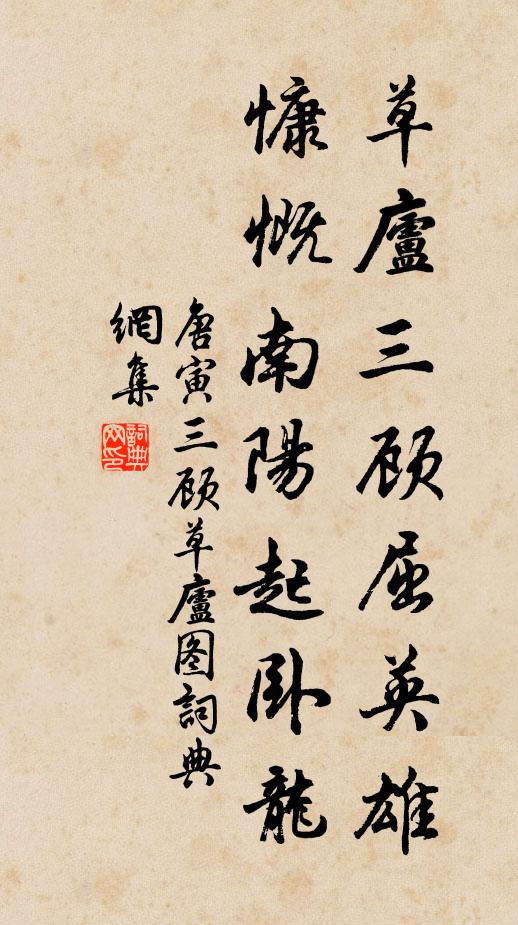 草廬三顾屈英雄
慷慨南陽起卧龍
唐寅三顾草廬图詞典
網集
詞典
网印